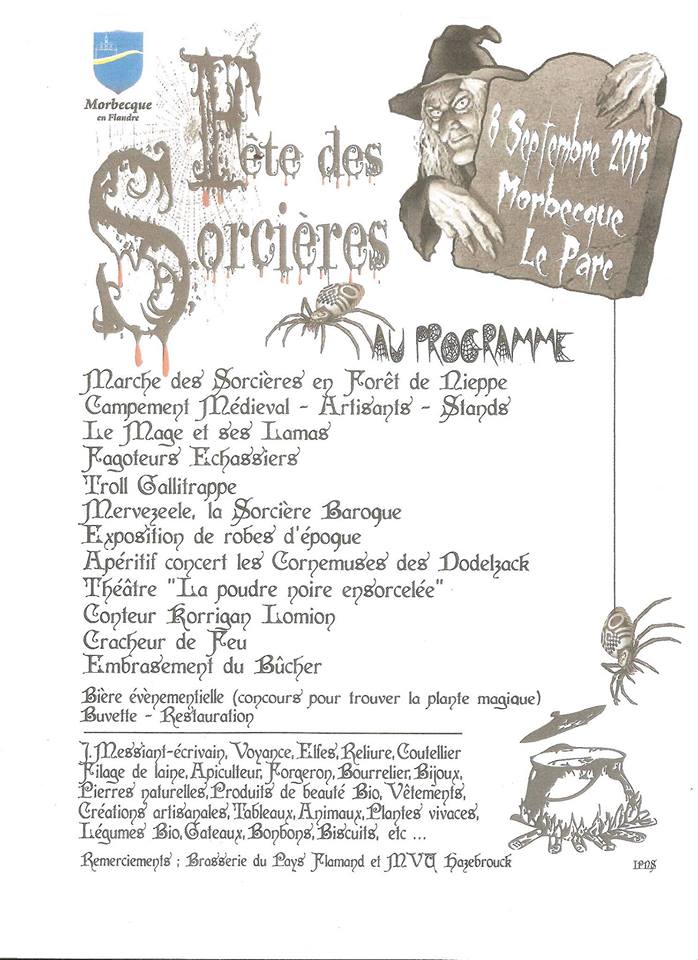 Morbecque
en Flandre
Fête des
Sorcières
8 Septembre 2013
Morbecque
Le Parc
AU PROGRAMME
Marche des Sorcières en Forêt de Nieppe
Campement Médiéval - Artisants - Stands
Le Mage et ses Lamas
Fagoteurs Echassiers
Troll Gallitrappe
Mervezeele, la Sorcière Baroque
Exposition de robes d'époque
Apéritif concert les Cornemuses des Dodelzack
Théâtre "La poudre noire ensorcelée"
Conteur Korrigan Lomion
Cracheur de Feu
Embrasement du Bûcher
Bière évènementielle (concours pour trouver la plante magique)
Buvette - Restauration
J.Messiant-écrivain, Voyance, Elfes, Reliure, Coutellier
Filage de laine, Apiculteur, Forgeron, Bourrelier, Bijoux,
Pierres naturelles, Produits de beauté Bio, Vêtements,
Créations artisanales, Tableaux, Animaux, Plantes vivaces,
Légumes Bio, Gateaux, Bonbons, Biscuits, etc ...
Remerciements : Brasserie du Pays Flamand et MVU Hazebrouck
IPNS